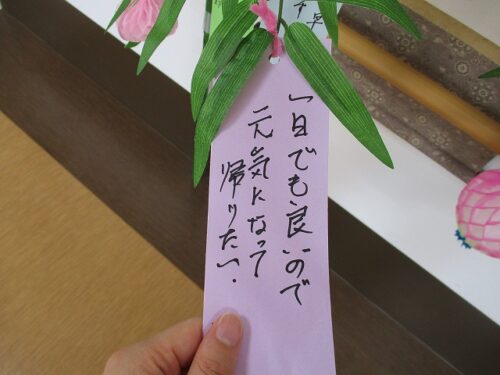 一日でも良いので
元気になって
帰りたい.